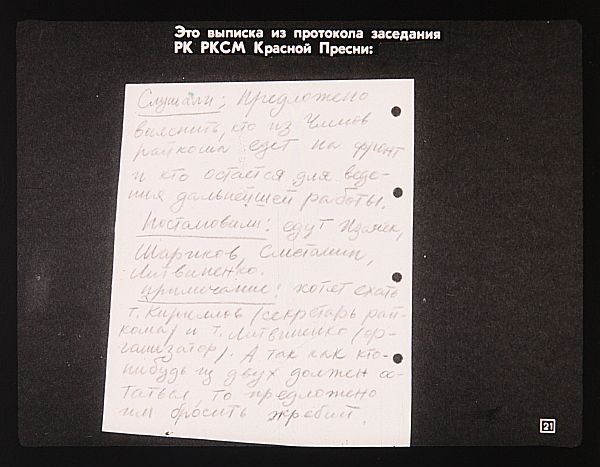 Это выписка из протокола заседания
РК РКСМ Красной Пресни:
Слушали: Предложено
выяснить, кто из членов
райкома едет на фронт
и кто остается для веде-
ния дальнейшей работы.
Постановили: едут Изачек,
Шариков, Сметанин,
Литвиненко.
Примечание: хотят ехать
т. Кириллов (секретарь рай-
кома) и т. Литвиненко (ор-
ганизатор). А так как кто-
нибудь из двух должен ос-
таться, то предложено
им бросить жребий.
21